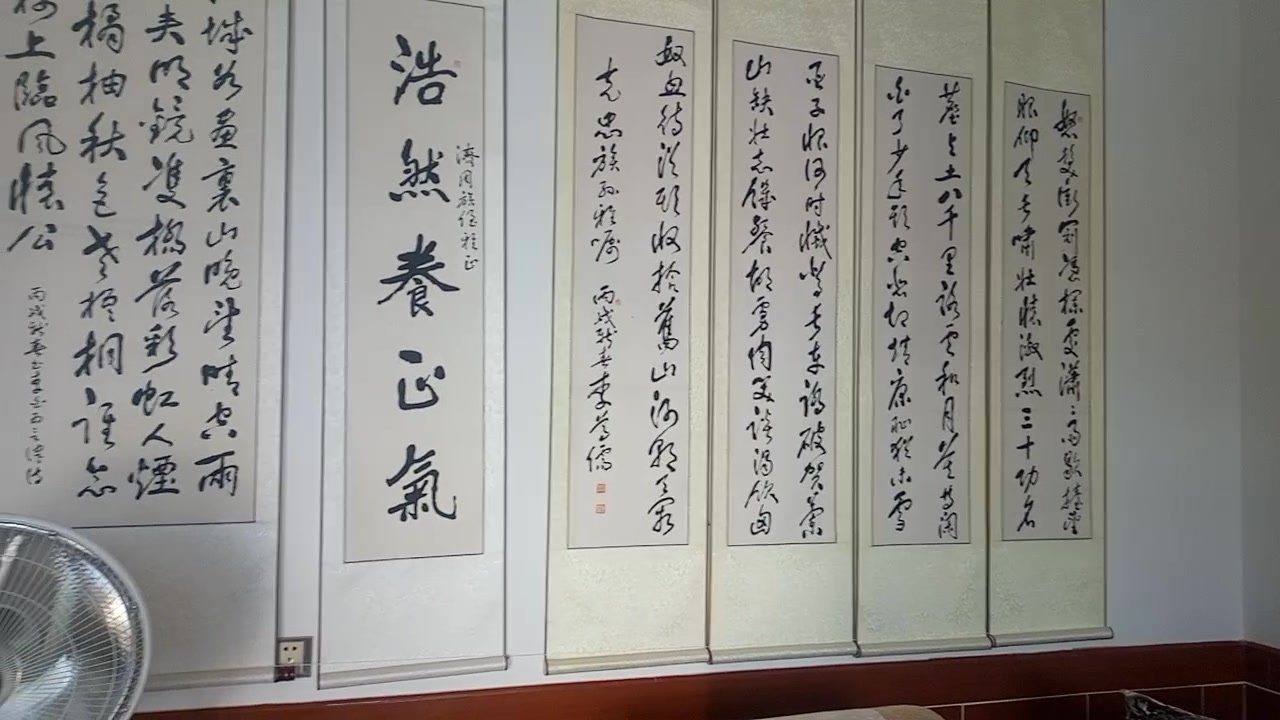 怒髮衝冠憑欄處瀟〻雨歇抬望
眼仰天長嘯壯懷激烈三十功名
塵与土八千里路雲和月莫等閑
白了少年頭空悲切靖康恥猶未雪
臣子恨何時滅駕長車踏破賀蘭
山缺壯志饑餐胡虜肉笑談渴飲匈
奴血待從頭收拾舊山河朝天闕
克忠族孙雅嘱 丙戌新春李萬儒
濟同族侄雅正
浩然養正氣
城如畫裏山晚望晴空雨
夾明鏡雙橋落彩虹人煙
橘柚秋色老梧桐誰念
樓上臨風懷公
丙戌新春書李白五言律詩